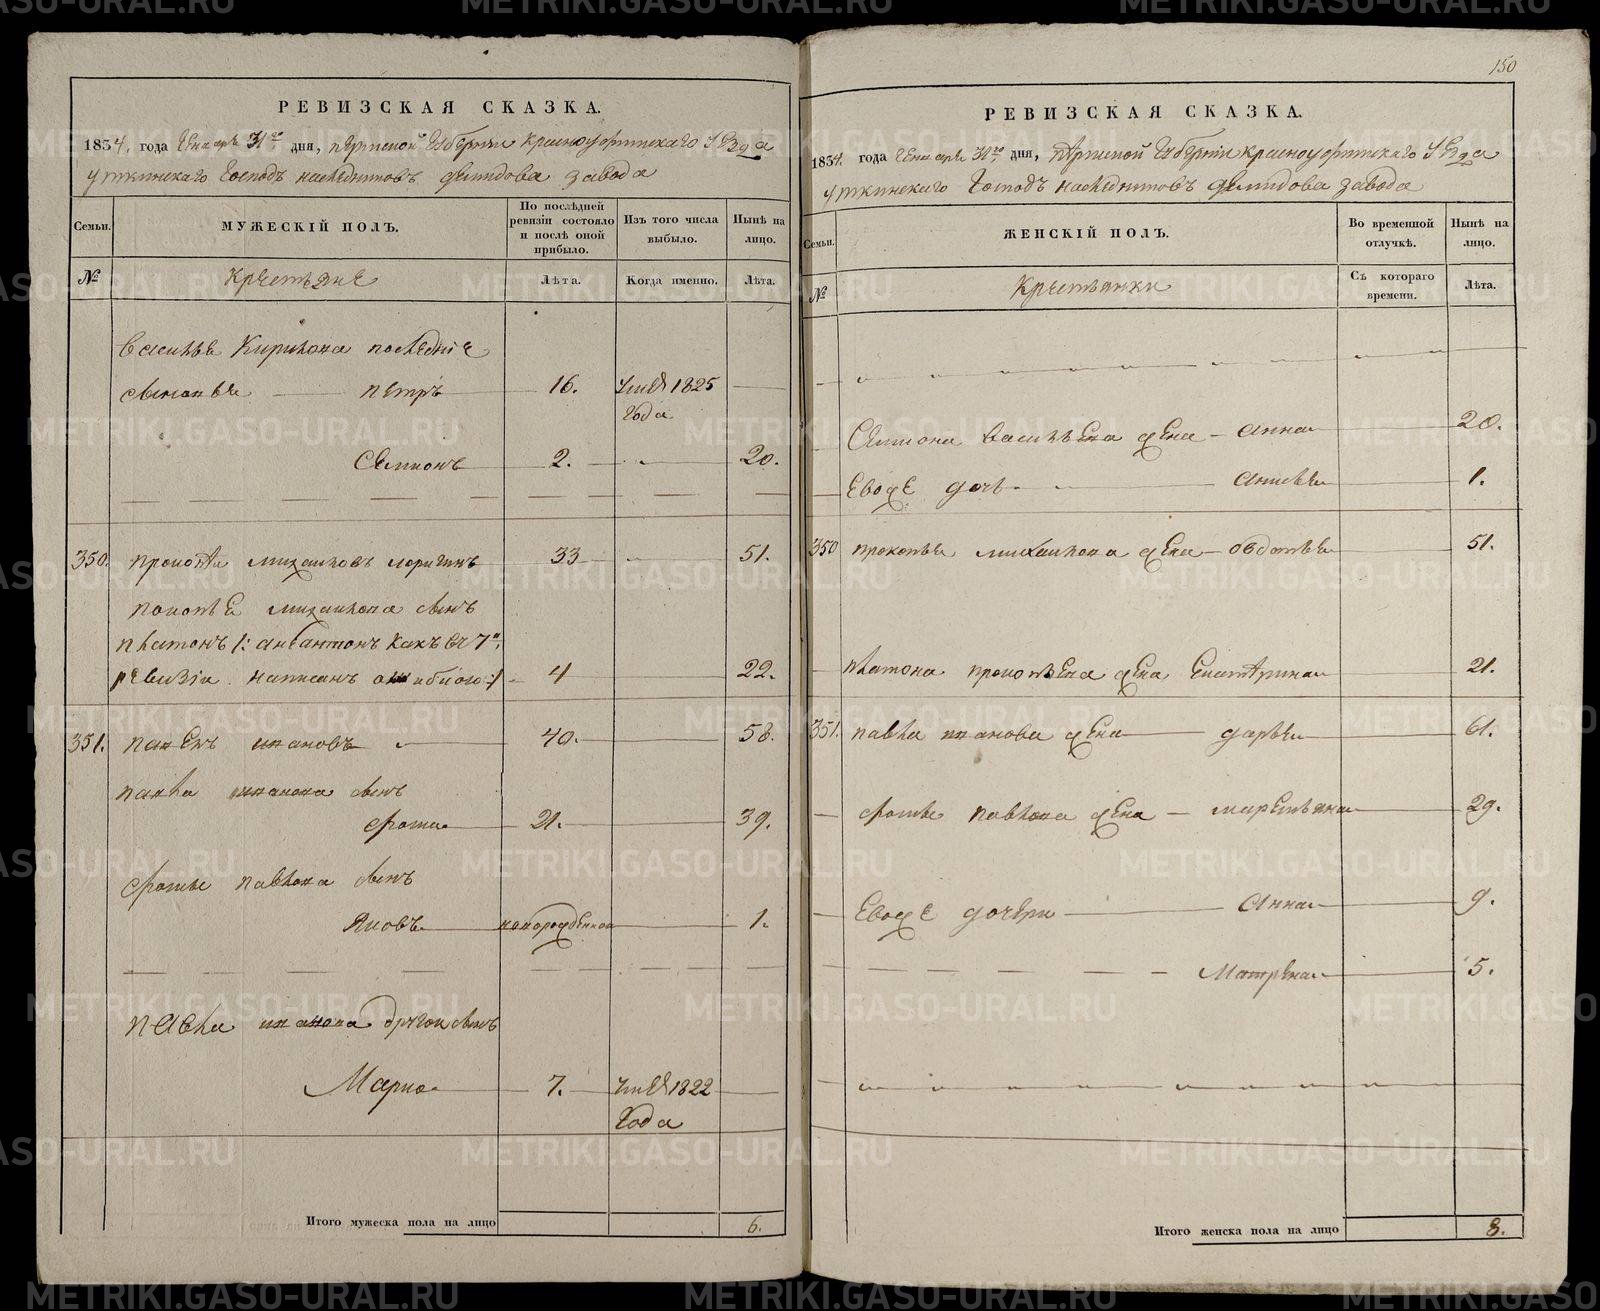 150
РЕВИЗСКАЯ СКАЗКА.
1834. года Генваря 31го дня, Пермской Губернии Красноуфимского Уезда
Уткинского Господъ наследниковъ Демидова завода
Семьи.
МУЖЕСКІЙ ПОЛЪ.
По послѣдней ревизіи состояло и послѣ оной прибыло.
Изъ того числа выбыло.
Нынѣ на лицо.
№
Крестьяне
Лѣта.
Когда именно.
Лѣта.
Василья Кирилова последние
сыновья Петръ 16. 1825 года
Семионъ 2. 20.
350. Прокопеи Михаиловъ 33 51.
Прокопья Михаилова сынъ
Платонъ /: а не антонъ какъ въ 7й
ревизiи написанъ ошибкою :/ 4 22.
351. Павелъ Ивановъ 40. 58.
Павла Иванова сынъ
Фома 21. 39.
Фомы Павлова сынъ
Яковъ новорожденной 1.
Павла Иванова другои сынъ
Марко 7. 1822 года
Итого мужеска пола на лицо 6.
РЕВИЗСКАЯ СКАЗКА.
1834. года Генваря 31го дня, Пермской Губернии Красноуфимского Уезда
Уткинского Господъ наследниковъ Демидова завода
Семьи.
ЖЕНСКІЙ ПОЛЪ.
Во временной отлучкѣ.
Нынѣ на лицо.
№
Крестьянки
Съ котораго времени.
Лѣта.
Семиона Васильева жена Анна 20.
Евоже дочь 1.
350 Прокопья Михаилова жена Овдотья 51.
Платона Прокопьева жена Екатерина 21.
351. Павла Иванова жена Дарья 61.
Фомы Павлова жена Маремьяна 29.
Евоже дочери Анна 9.
Матрена 5.
Итого женска пола на лицо 8.
METRIKI.GASO-URAL.RU